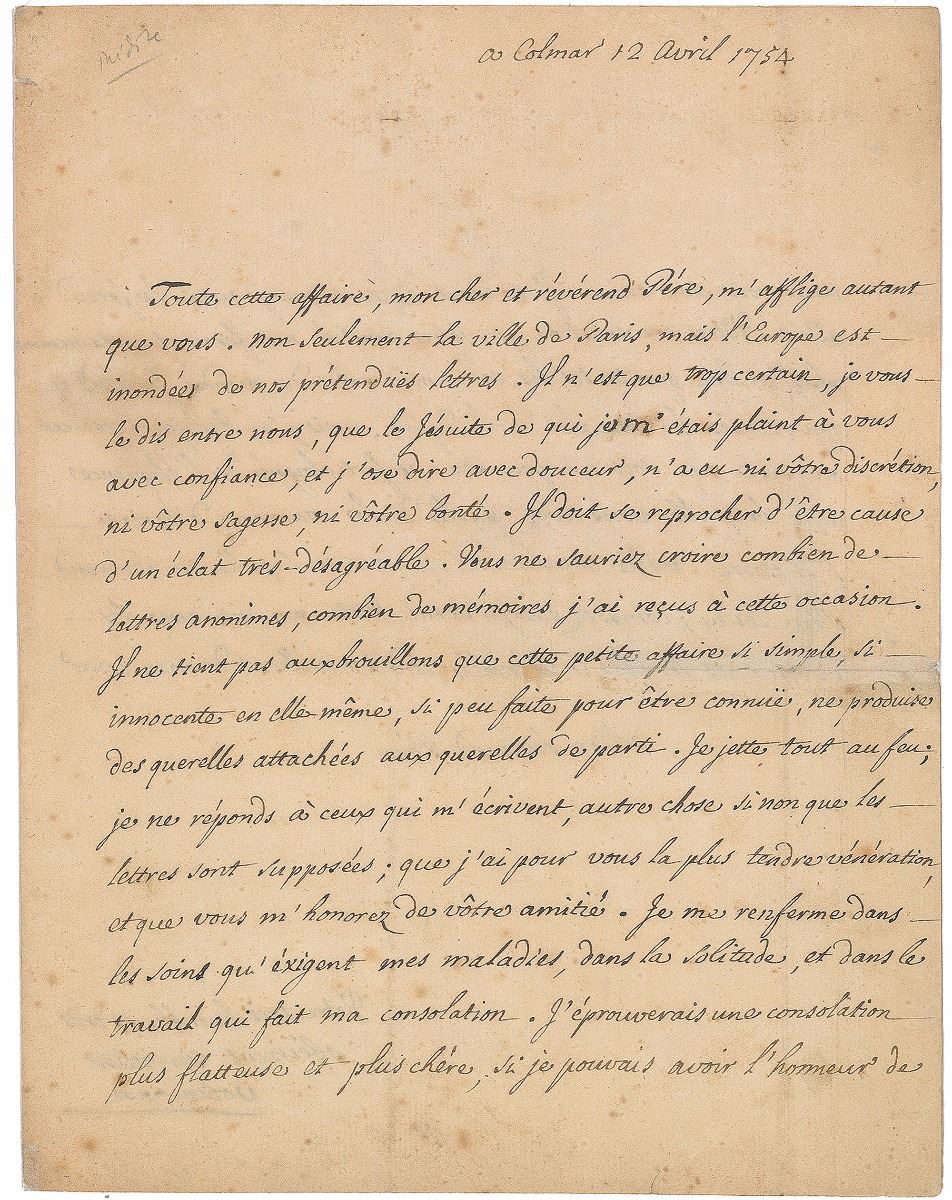 inédite
a Colmar 12 Avril 1754
Toute cette affaire, mon cher et révérend Pére, m'afflige autant
que vous. non seulement la ville de Paris, mais l'Europe est
inondées de nos prétenduës lettres. Il n'est que trop certain, je vous
le dis entre nous, que le Jésuite de qui je m'étais plaint à vous
avec confiance, et j'ose dire avec douceur, n'a eu ni vôtre discrétion,
ni vôtre sagesse, ni vôtre bonté. Il doit se reprocher d'être cause
d'un éclat trés-désagréable. Vous ne sauriez croire combien de
lettres anonimes, combien de mémoires j'ai reçus à cette occasion.
Il ne tient pas aux brouillons que cette petite affaire si simple, si
innocente en elle même, si peu faite pour être connuë, ne produise
des querelles attachées aux querelles de parti. Je jette tout au feu;
je ne réponds à ceux qui m'écrivent, autre chose si non que les
lettres sont supposées; que j'ai pour vous la plus tendre vénération,
et que vous m'honorez de vôtre amitié. Je me renferme dans
les soins qu'éxigent mes maladies, dans la solitude, et dans le
travail qui fait ma consolation. J'éprouverais une consolation
plus flatteuse et plus chére, si je pouvais avoir l'honneur de